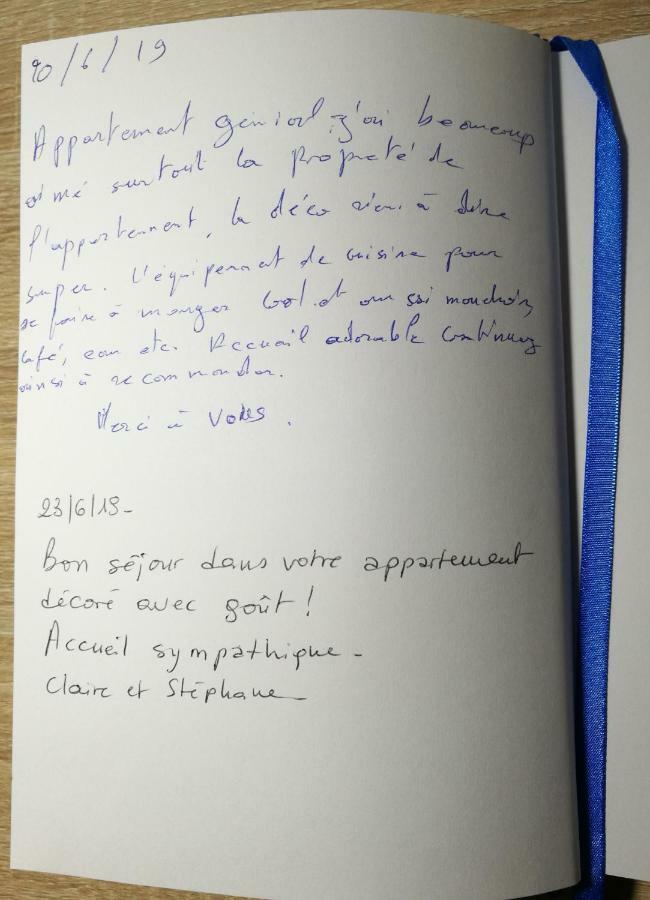 20/6/19
Appartement génial, j'ai beaucoup
aimé surtout la propreté de
l'appartement, la déco rien à dire
super. L'équipement de cuisine pour
se faire à manger
café, eau etc. Accueil adorable Continuez
ainsi à recommander.
Merci à vous.
23/6/19-
Bon séjour dans votre appartement
décoré avec goût !
Accueil sympathique -
Claire et Stéphane